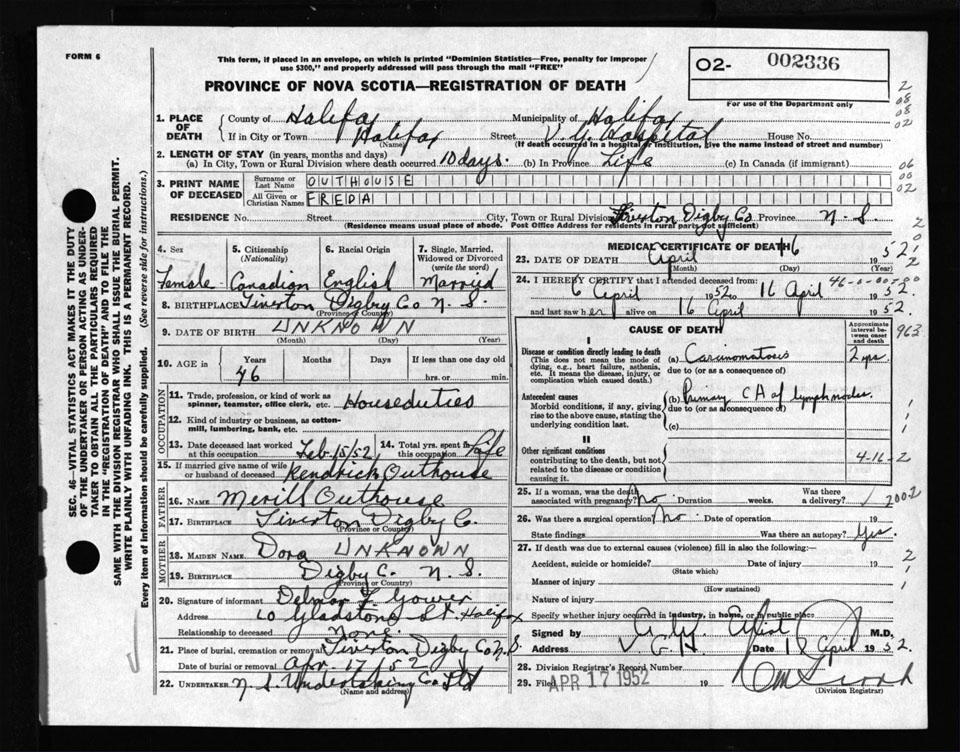 FORM 6
This form, if placed in an envelope, on which is printed "Dominion Statistics—Free, penalty for improper
use $300," and properly addressed will pass through the mail "FREE"
O2- 002336
For use of the Department only
PROVINCE OF NOVA SCOTIA—REGISTRATION OF DEATH
1. PLACE OF DEATH
County of Halifax Municipality of Halifax
If in City or Town Halifax (Name) Street V. G. Hospital House No.
(If death occurred in a hospital or institution, give the name instead of street and number)
2. LENGTH OF STAY (in years, months and days)
(a) In City, Town or Rural Division where death occurred 10 days. (b) In Province Life (c) In Canada (if immigrant)
3. PRINT NAME OF DECEASED
Surname or Last Name OUTHOUSE
All Given or Christian Names FREDA
RESIDENCE No. Street City, Town or Rural Division Tiverton Digby Co Province N. S.
(Residence means usual place of abode. Post Office Address for residents in rural parts not sufficient)
4. Sex Female
5. Citizenship (Nationality) Canadian
6. Racial Origin English
7. Single, Married, Widowed or Divorced (write the word) Marryd
8. BIRTHPLACE Tiverton Digby Co N. S.
(Province or Country)
9. DATE OF BIRTH UNKNOWN
(Month) (Day) (Year)
10. AGE in Years 46 Months Days If less than one day old hrs. or min.
OCCUPATION
11. Trade, profession, or kind of work as spinner, teamster, office clerk, etc. Houseduties
12. Kind of industry or business, as cotton-mill, lumbering, bank, etc.
13. Date deceased last worked at this occupation Feb. 15/52
14. Total yrs. spent in this occupation Life
15. If married give name of wife or husband of deceased Kendrick Outhouse
FATHER
16. NAME Merill Outhouse
17. BIRTHPLACE Tiverton Digby C.
(Province or Country)
MOTHER
18. MAIDEN NAME Dora UNKNOWN
19. BIRTHPLACE Digby C. N. S.
(Province or Country)
20. Signature of informant Delmar F Gower
Address 60 Gladstone St. Halifax
Relationship to deceased None.
21. Place of burial, cremation or removal Tiverton Digby Co N. S.
Date of burial or removal Apr. 17/52
22. UNDERTAKER N. S. Undertaking Co Ltd
(Name and address)
MEDICAL CERTIFICATE OF DEATH
23. DATE OF DEATH April 16 1952
(Month) (Day) (Year)
24. I HEREBY CERTIFY that I attended deceased from:
6 April 1952 to 16 April 1952
and last saw her alive on 16 April 1952
CAUSE OF DEATH
Approximate interval between onset and death
I
Disease or condition directly leading to death
(This does not mean the mode of dying, e.g., heart failure, asthenia, etc. It means the disease, injury, or complication which caused death.)
(a) Carcinomatosis 2 yrs.
due to (or as a consequence of)
Antecedent causes
Morbid conditions, if any, giving rise to the above cause, stating the underlying condition last.
(b) Primary CA of lymph nodes.
due to (or as a consequence of)
(c)
II
Other significant conditions
contributing to the death, but not related to the disease or condition causing it.
963
4-16-2
25. If a woman, was the death associated with pregnancy? No. Duration weeks. Was there a delivery?
2002
26. Was there a surgical operation? No. Date of operation 19
State findings Was there an autopsy? Yes.
27. If death was due to external causes (violence) fill in also the following:—
Accident, suicide or homicide? Date of injury 19
(State which)
Manner of injury
(How sustained)
Nature of injury
Specify whether injury occurred in industry, in home, or in public place
Signed by M.D,
Address V G H. Date 18 April 1952.
28. Division Registrar's Record Number
29. Filed APR 17 1952 19
(Division Registrar)
SEC. 46—VITAL STATISTICS ACT MAKES IT THE DUTY
OF THE UNDERTAKER OR PERSON ACTING AS UNDER-
TAKER TO OBTAIN ALL THE PARTICULARS REQUIRED
IN THE "REGISTRATION OF DEATH" AND TO FILE THE
SAME WITH THE DIVISION REGISTRAR WHO SHALL ISSUE THE BURIAL PERMIT.
WRITE PLAINLY WITH UNFADING INK. THIS IS A PERMANENT RECORD.
Every item of information should be carefully supplied. (See reverse side for instructions.)